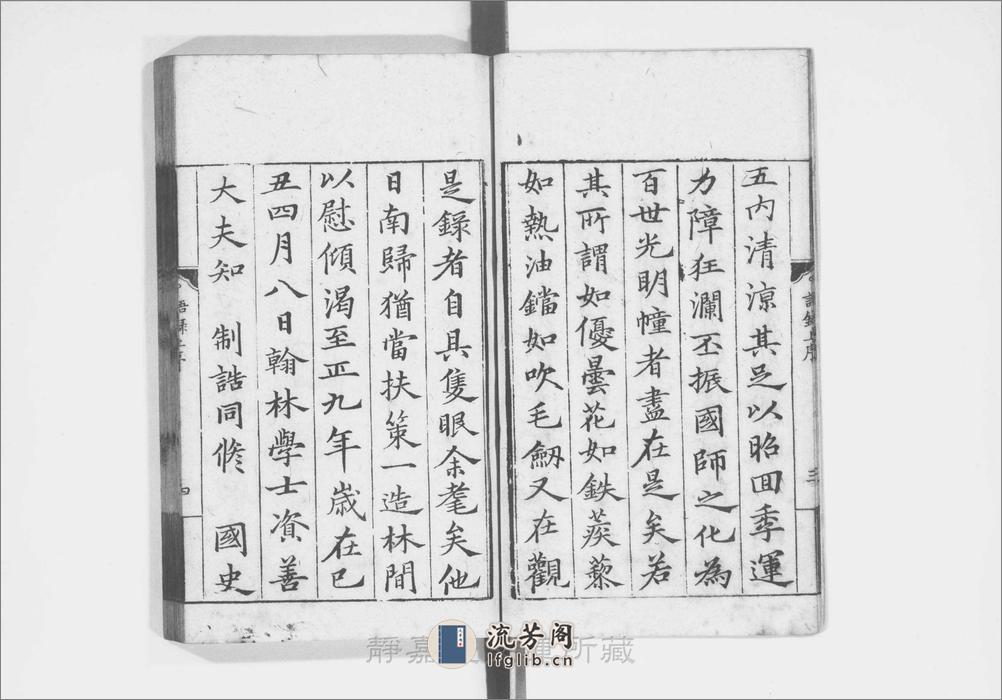 五内清涼其足以昭回季運
力障狂瀾丕振國師之化為
百世光明幢者盡在是矣若
其所謂如優曇花如鉄蒺藜
如熱油鐺如吹毛劒又在觀
是錄者自具隻眼余耄矣他
日南歸猶當扶策一造林間
以慰傾渴至正九年歲在已
丑四月八日翰林學士資善
大夫知 制誥同脩 國史
語錄上序
三
語錄上序
四
靜嘉 所藏
流芳阁
lfglib.cn